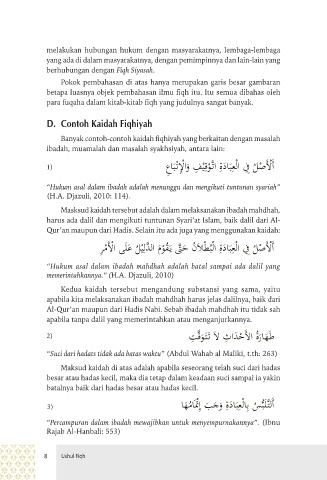 melakukan hubungan hukum dengan masyarakatnya, lembaga-lembaga
yang ada di dalam masyarakatnya, dengan pemimpinnya dan lain-lain yang
berhubungan dengan Fiqh Siyasah.
Pokok pembahasan di atas hanya merupakan garis besar gambaran
betapa luasnya objek pembahasan ilmu fiqh itu. Itu semua dibahas oleh
para fuqaha dalam kitab-kitab fiqh yang judulnya sangat banyak.
D. Contoh Kaidah Fiqhiyah
Banyak contoh-contoh kaidah fiqhiyah yang berkaitan dengan masalah
ibadah, muamalah dan masalah syakhsiyah, antara lain:
1) أَلْأَصْلُ فِي الْعِبَادَةِ التَّوْقِيْفِ وَالْإِتْبَاعِ
"Hukum asal dalam ibadah adalah menunggu dan mengikuti tuntunan syariah"
(H.A. Djazuli, 2010: 114).
Masksud kaidah tersebut adalah dalam melaksanakan ibadah mahdhah,
harus ada dalil dan mengikuti tuntunan Syari'at Islam, baik dalil dari Al-
Qur'an maupun dari Hadis. Selain itu ada juga yang menggunakan kaidah:
أَلْأَصْلُ فِي الْعِبَادَةِ الْبُطْلَانُ حَتَّى يَقُوْمَ الدَّلِيْلُ عَلَى الْأَمْرِ
"Hukum asal dalam ibadah mahdhah adalah batal sampai ada dalil yang
memerintahkannya." (H.A. Djazuli, 2010)
Kedua kaidah tersebut mengandung substansi yang sama, yaitu
apabila kita melaksanakan ibadah mahdhah harus jelas dalilnya, baik dari
Al-Qur'an maupun dari Hadis Nabi. Sebab ibadah mahdhah itu tidak sah
apabila tanpa dalil yang memerintahkan atau menganjurkannya.
2) طَهَارَةُ الْأَحْدَاثِ لَا تَتَوَقَّتُ
"Suci dari hadats tidak ada batas waktu" (Abdul Wahab al Maliki, t.th: 263)
Maksud kaidah di atas adalah apabila seseorang telah suci dari hadas
besar atau hadas kecil, maka dia tetap dalam keadaan suci sampai ia yakin
batalnya baik dari hadas besar atau hadas kecil.
3) أَلتَّلَبُّسُ بِالْعِبَادَةِ وَجَبَ إِتْمَامُهَا
"Percampuran dalam ibadah mewajibkan untuk menyempurnakannya". (Ibnu
Rajab Al-Hanbali: 553)
8 Ushul Fiqh